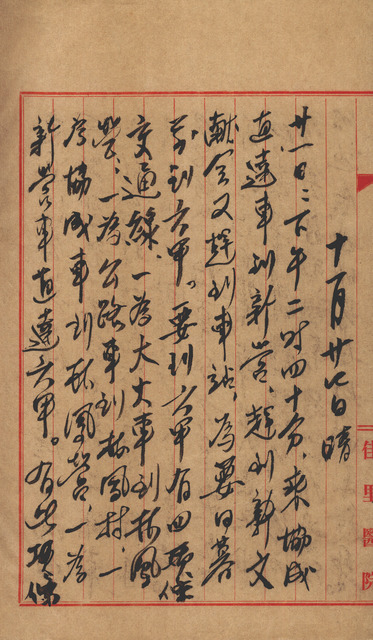 十一月廿七日 晴
廿一日：下午二時四十分，乘協成
直達車到新營，趕到新文
獻会又趕到車站，為要日暮
前到六甲。要到六甲有四項條
交通線，一為大火車到林鳳
營，一為公路車到林鳳村，一
為協成車到林鳳營，一為
新營車直達六甲。有此項條
佳里醫院